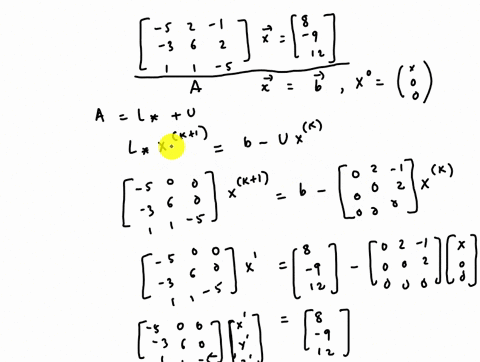 [-5 2 -1; -3 6 2; 1 1 -5] x⃗ = [8; -9; 12]
A x⃗ = b⃗ , x⁰ = (x; 0; 0)
A = L* + U
L* x^(k+1) = b - U x^(k)
[-5 0 0; -3 6 0; 1 1 -5] x^(k+1) = b - [0 2 -1; 0 0 2; 0 0 0] x^(k)
[-5 0 0; -3 6 0; 1 1 -5] x' = [8; -9; 12] - [0 2 -1; 0 0 2; 0 0 0] [x; 0; 0]
[-5 0 0; -3 6 0; 1 1 -5] [x'; y'; z'] = [8; -9; 12]